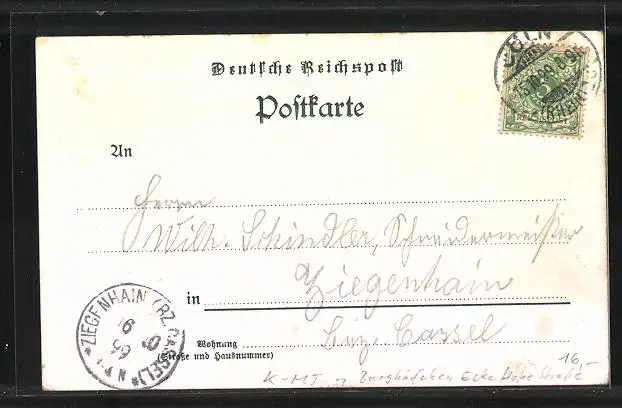 Deutsche Reichspost
CÖLN
Postkarte
An
Herrn
Wilh. Schindler, Schreidermeister
Ziegenhain
in
Bez. Cassel
Wohnung
(Straße und Hausnummer)
*ZIEGENHAIN (BZ. CASSEL)*
16,-
K-MJ Burghöfchen Ecke Hohe Straße